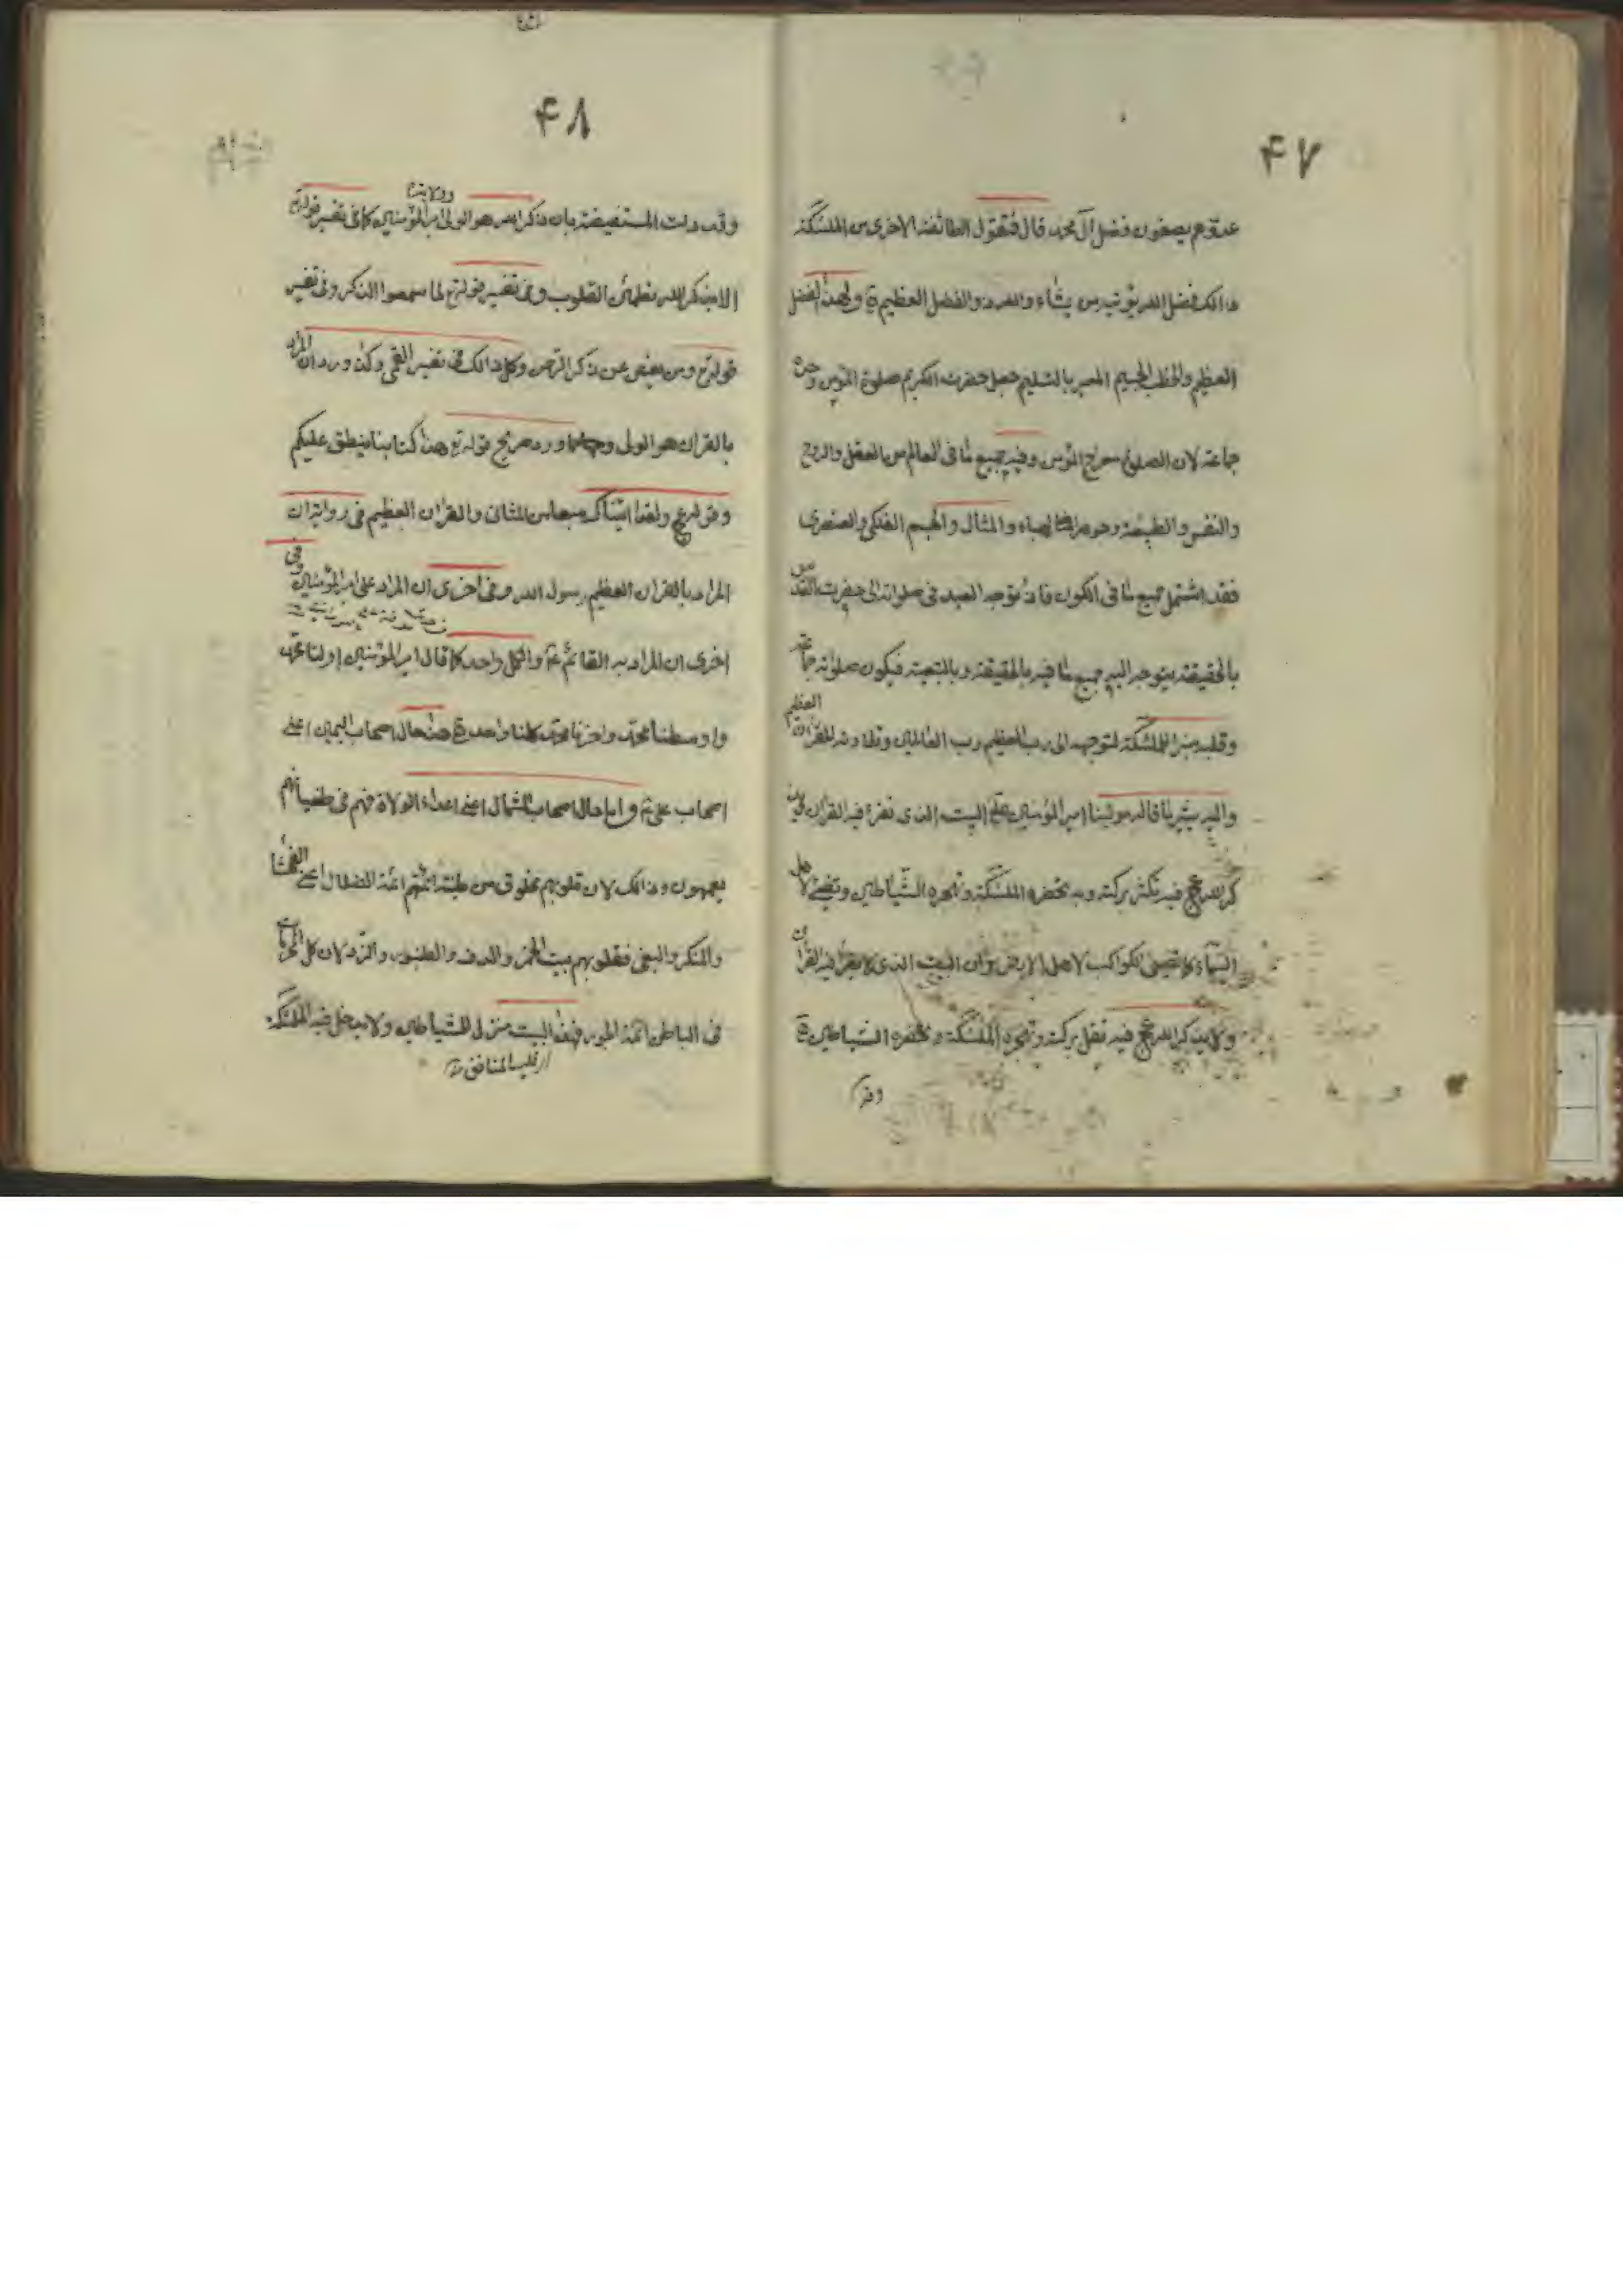 ۴۷
عدوهم يصفون فضل آل محمد قال فتقول الطائفة الاخرى من الملئكة
ذالك فضل الله يوتيه من يشاء والله ذو الفضل العظيم ولهذا الفضل
العظيم والخطب الجسيم المعبر بالتسليم جعل حضرت الكريم صلوة المؤمن وحده
جماعة لان الصلوة معراج المؤمن وفيه جميع ما فى العالم من العقل والروح
والنفس والطبيعة وجوهر الهباء والمثال والجسم الفلكى والعنصرى
فقد اشتمل جميع ما فى الكون فاذا توجه العبد فى صلوته الى حضرت القدس
بالحقيقة يتوجه اليه جميع ما فيه بالحقيقة وبالتبعية فيكون صلوته جماعة
وقلبه منزل الملئكة لتوجهه الى رب العظيم رب العالمين وتلاوته للقران العظيم
واليه يشير ما قاله مولينا امير المؤمنين البيت الذى تقرأ فيه القران ويذ
كر الله عج فيه تكثر بركته وبه تحضره الملئكة وتهجره الشياطين وتضيئ لاهل
السماء كما تضيئ الكواكب لاهل الارض وان البيت الذى لا يقرأ فيه القران
ولا يذكر الله عج فيه تقل بركته وتهجره الملئكة وتحضره الشياطين
وقد
۴۸
وقد دلت المستفيضة بان ذكر الله هو الولى امير المؤمنين وولايته كما فى تفسير قوله تع
الا بذكر الله تطمئن القلوب وفى تفسير قوله تع لما سمعوا الذكر وفى تفسير
قوله تع ومن يعرض عن ذكر الرحمن وكل ذالك فى تفسير القمى وكذا ورد ان المراد
بالقران هو الولى ورد صريح قوله تع هذا كتابنا ينطق عليكم
وقوله تع ولقد اتيناك سبعا من المثانى والقران العظيم فى رواية ان
المراد بالقران العظيم رسول الله وفى اخرى ان المراد على امير المؤمنين وفى
اخرى ان المراد به القائم والكل واحد كما قال امير المؤمنين اولنا محمد
واوسطنا محمد واخرنا محمد كلنا واحد هذا حال اصحاب اليمين اعنى
اصحاب على واما حال اصحاب الشمال اعنى اعداء الولاة فهم فى طغيانهم
يعمهون وذالك لان قلوبهم مخلوق من طينة ائمتهم ائمة الضلال اعنى الفحشاء
والمنكر والبغى فقلوبهم بيت الخمر والدف والطنبور والنرد لان كل
فى الباطن ائمة الجور فهذا البيت منزل للشياطين ولا يدخل فيه الملئكة